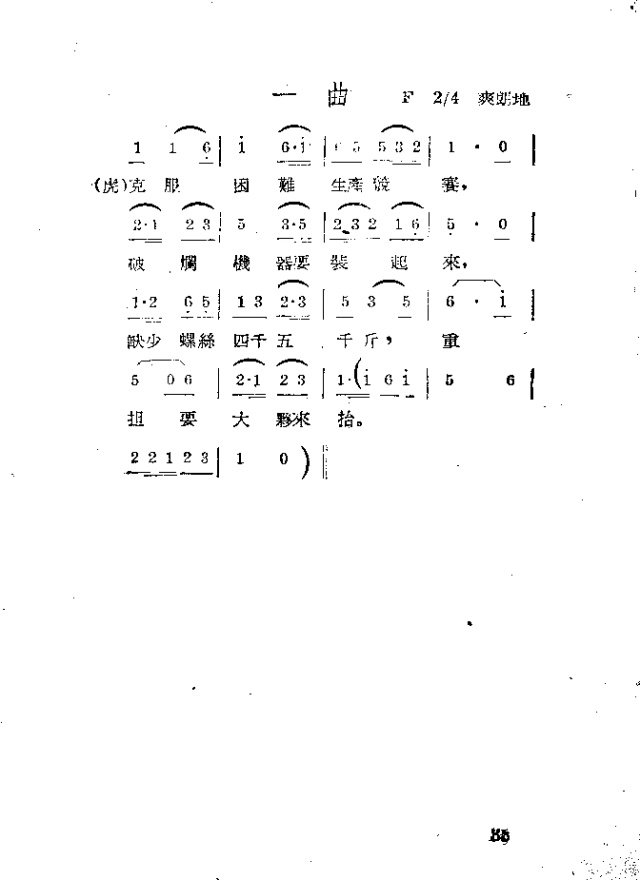 一曲 F 2/4 爽朗地
1 1 6 | i 6·i | 6 5 5 3 2 | 1 · 0 |
(虎)克服 困難 生產競 賽，
2·1 2 3 | 5 3·5 | 2 3 2 1 6 | 5 · 0 |
破爛機器要裝起來，
1·2 6 5 | 1 3 2·3 | 5 3 5 | 6 · i |
缺少螺絲四千五千斤，重
5 0 6 | 2·1 2 3 | 1·(i 6 i | 5 6 |
担要大夥來抬。
2 2 1 2 3 | 1 0 ) ‖